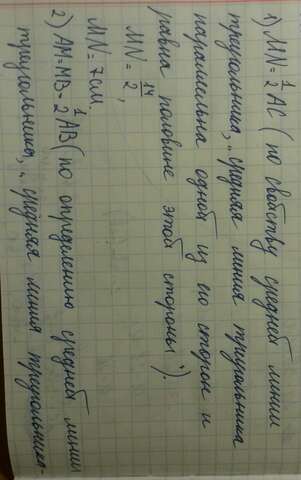 1) MN = 1/2 AC (по свойству средней линии
треугольника, „средняя линия треугольника
параллельна одной из его сторон и
равна половине этой стороны").
MN = 14/2,
MN = 7 см
2) AM = MB = 1/2 AB (по определению средней линии
треугольника, „средняя линия треугольника-